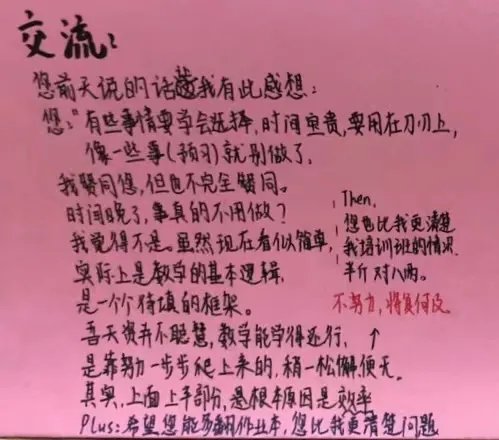 交流：
您前天说的话让我有此感想：
您："有些事情要学会选择，时间宝贵，要用在刀刃上，
像一些事(预习)就别做了，
我赞同您，但也不完全赞同。
时间晚了，事真的不用做？
我觉得不是。虽然现在看似简单，
实际上是数学的基本逻辑，
是一个个待填的框架。
吾天资并不聪慧，数学能学得还行，
是靠努力一步步爬上来的，稍一松懈便无。
其实，上面上半部分，是根本原因是效率
Plus：希望您能多翻作业本，您比我更清楚问题
Then,
您也比我更清楚
我培训班的情况
半斤对八两。
不努力，将复何及